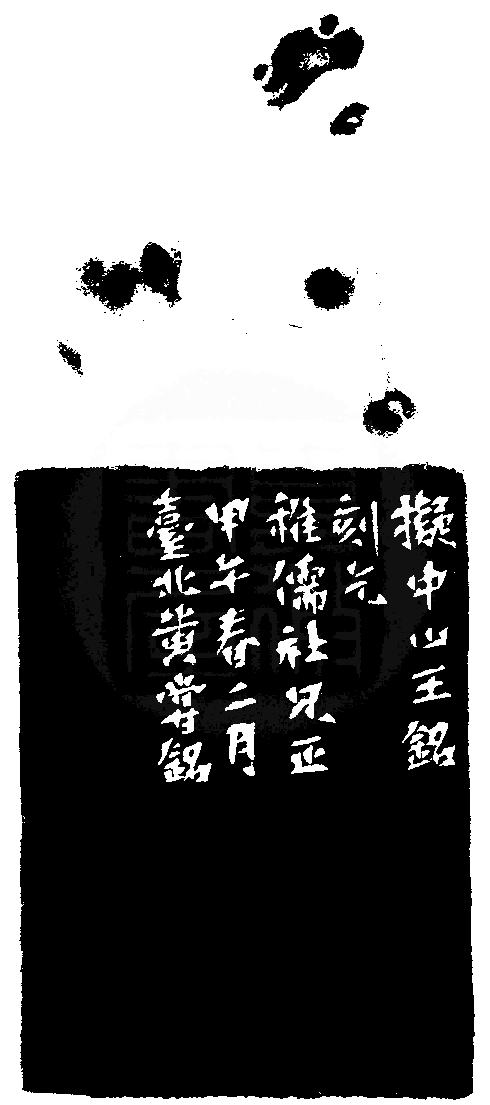 擬中山王銘
刻
稚儒社兄正
甲午春二月
臺北黃嘗銘